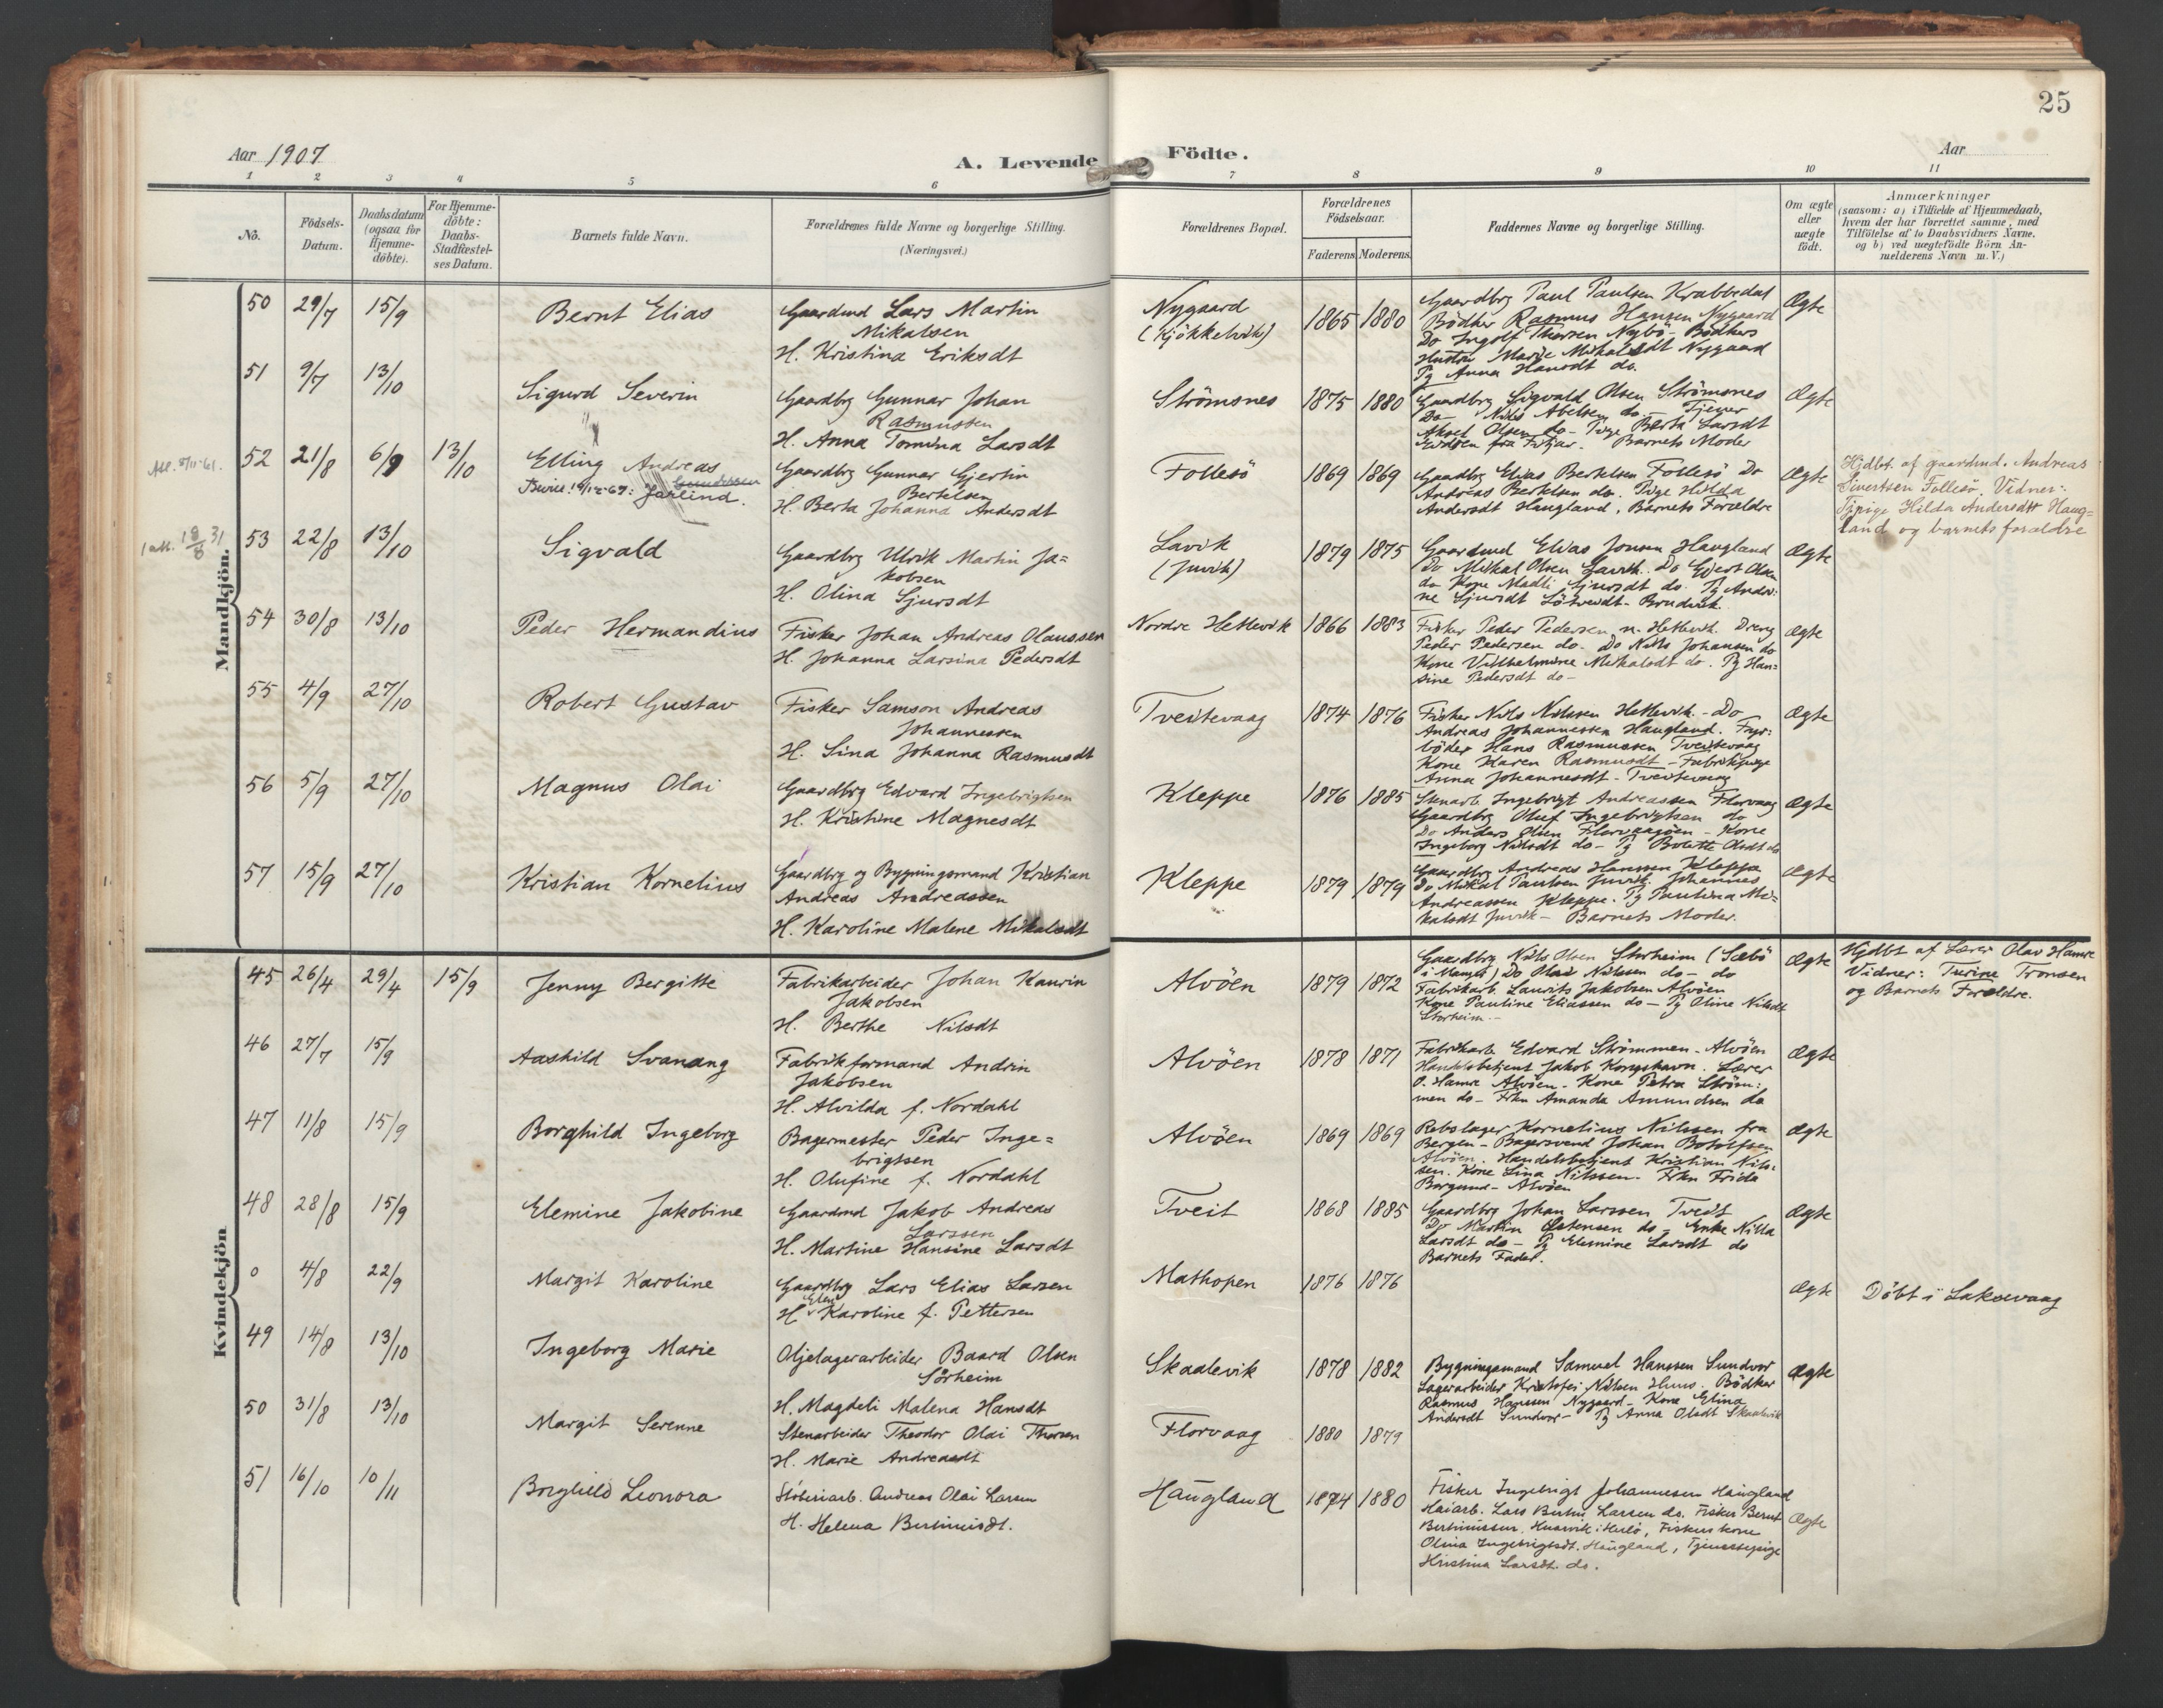 25
Aar 1907
A. Levende Födte.
Aar
1 2 3 4 5 6 7 8 9 10 11
No.
Födsels-Datum.
Daabsdatum (ogsaa for Hjemme-döbte).
For Hjemme-döbte: Daabs-Stadfæstel-ses Datum.
Barnets fulde Navn.
Forældrenes fulde Navne og borgerlige Stilling.
(Næringsvei.)
Forældrenes Bopæl.
Forældrenes Födselsaar.
Faderens. Moderens.
Faddernes Navne og borgerlige Stilling.
Om ægte eller uægte födt.
Anmærkninger
(saasom: a) i Tilfælde af Hjemmedaab,
hvem der har forrettet samme, med
Tilföielse af to Daabsvidners Navne,
og b) ved uægtefödte Börn An-
melderens Navn m. V.)
Mandkjön.
50 29/7 15/9 Bernt Elias
Gaardmd Lars Martin
Mikalsen
H. Kristina Eriksdt
Nygaard
(Kjökkelvik)
1865 1880
Gaardbrg Paul Paulsen Krabbedal
Bödker Rasmus Hansen Nygaard
Do Ingolf Thorsen Nybö - Bödkers
Hustru Marie Mikalsdt Nygaard
Pg Anna Hansdt do.
Ægte
51 9/7 13/10 Sigurd Severin
Gaardbrg Gunnar Johan
Rasmussen
H. Anna Tomina Larsdt
Strömsnes
1875 1880
Gaardbrg Sigvald Olsen Strömsnes
Do Nils Abelsen do. Tjener
Aksel Olsen do - Pige Berta Larsdt
fra Fitjar. Barnets Moder
Ægte
52 21/8 6/9 13/10 Elling Andreas
Gundersen
Bevill. 19/12-69: Jarlind.
Gaardbrg Gunnar Gjertin
Bertelsen
H. Berta Johanna Andersdt
Follesö
1869 1869
Gaardbrg Elias Bertelsen Follesö Do
Andreas Bertelsen do. Pige Hilda
Andersdt Haugland, Barnets Forældre
Ægte
Hjdbt. af gaardmd. Andreas
Sivertsen Follesö. Vidner:
Tjpige Hilda Andersdtt Haug=
land og barnets forældre
53 22/8 13/10 Sigvald
Gaardbrg Ulrik Martin Ja=
kobsen
H. Olina Sjursdt
Lavik
(Juvik)
1879 1875
Gaardmd Elias Jonsen Haugland
Do Mikal Olsen Juvik. Do Gjert Olsen
do Kone Madli Sjursdt do Pg Andri:
ne Sjursdt
Ægte
54 30/8 13/10 Peder Hermandius
Fisker Johan Andreas Olaussen
H. Johanna Larsina Pedersdt
Nordre Hetlevik
1866 1883
Fisker Peder Pedersen n. Hetlevik. Dreng
Peder Pedersen do. Do Nils Johansen do
Kone Villhelmine Mikalsdt do. Pg Han=
sine Pedersdt do -
Ægte
55 4/9 27/10 Robert Gustav
Fisker Samson Andreas
Johannessen
H. Sina Johanna Rasmusdt
Tveitevaag
1874 1876
Fisker Nils Nilssen Hetlevik - Do
Andreas Johannessen Haugland. Fyr:
böder Hans Rasmussen Tveitevaag
Kone Karen Rasmusdt - Fabrikpige
Anna Johannesdt - Tveitevaag
Ægte
56 5/9 27/10 Magnus Olai
Gaardbrg Edvard Ingebrigtsen
H. Kristine Magnesdt
Kleppe
1876 1885
Stenarb. Ingebrigt Andreassen Florvaag
Gaardbrg Oluf Ingebrigtsen do
Do Anders Olsen Florvaagöen - Kone
Ingeborg Nilsdt do - Pg Bolette Olsdt do
Ægte
57 15/9 27/10 Kristian Kornelius
Gaardbrg og Bygningsmand Kristian
Andreas Andreassen
H. Karoline Malene Mikalsdt
Kleppe
1879 1879
Gaardbrg Andreas Hanssen Kleppe
Do Mikal Paulsen Juvik. Johannes
Andreassen Kleppe. Pg Paulina Mi=
kalsdt Juvik - Barnets Moder.
Ægte
Kvindekjön
45 26/4 29/4 15/9 Jenny Bergitte
Fabrikarbeider Johan Kaurin
Jakobsen
H. Berthe Nilsdt
Alvöen
1879 1872
Gaardbrg Nils Olsen Storheim (Sæbö
i Manger) Do Olai Nilssen do - do
Fabrikarb. Laurits Jakobsen Alvöen
Kone Pauline Eliassen do - Pg Oline Nilsdt
Storheim. -
Ægte
Hjdbt af Lærer Olav Hamre
Vidner: Turine Tronsen
og Barnets Forældre.
46 27/7 15/9 Aashild Svanaug
Fabrikformand Andrin
Jakobsen
H. Alvilda f. Nordahl
Alvöen
1878 1871
Fabrikarb. Edvard Strömmen - Alvöen
Handelsbetjent Jakob Kongshavn. Lærer
O. Hamre Alvöen - Kone Petra Ström:
men do - Frkn Amanda Amundsen do
Ægte
47 11/8 15/9 Borghild Ingeborg
Bagermester Peder Inge=
brigtsen
H. Olufine f. Nordahl
Alvöen
1869 1869
Rebslager Kornelius Nilssen fra
Bergen - Bagersvend Johan Botolfsen
Alvöen. Handelsbetjent Kristian Nils:
sen. Kone Lina Nilssen. Frkn Frida
Borgund - Alvöen
Ægte
48 28/8 15/9 Elemine Jakobine
Gaardmd Jakob Andreas
Larssen
H. Martine Hansine Larsdt
Tveit
1868 1885
Gaardbrg Johan Larssen Tveit
Do Martin Östensen do - Enke Nilla
Larsdt do - Pg Elemine Larsdt do
Barnets Fader.
Ægte
0 4/8 22/9 Margit Karoline
Gaardbrg Lars Elias Larsen
H. Elen Karoline f. Pettersen
Mathopen
1876 1876
Ægte
Döbt i Laksevaag
49 14/8 13/10 Ingeborg Marie
Oljelagerarbeider Baard Olsen
Sörheim
H. Magdeli Malena Hansdt
Skaalevik
1878 1882
Bygningsmand Samuel Hanssen Sundvor
Lagerarbeider Kristofer Nilsen Huus. Bödker
Rasmus Hanssen Nygaard - Kone Elina
Andersdt Sundvor - Pg Anna Olsdt Skaalevik
Ægte
50 31/8 13/10 Margit Serenne
Stenarbeider Theodor Olai Thorsen
H. Marie Andreasdt
Florvaag
1880 1879
51 16/10 10/11 Borghild Leonora
Støberiarb. Andreas Olai Larsen
H. Helena Bertinusdt.
Haugland
1874 1880
Fisker Ingebrigt Johannesen Haugland
Lars Bertin Larsen do. Fisker Bernt
Bertinussen, Husevik i Herlö, Fiskers kone
Olina Ingebrigtsdt. Haugland, Tjenestepige
Kristina Larsdt. do.
Ægte